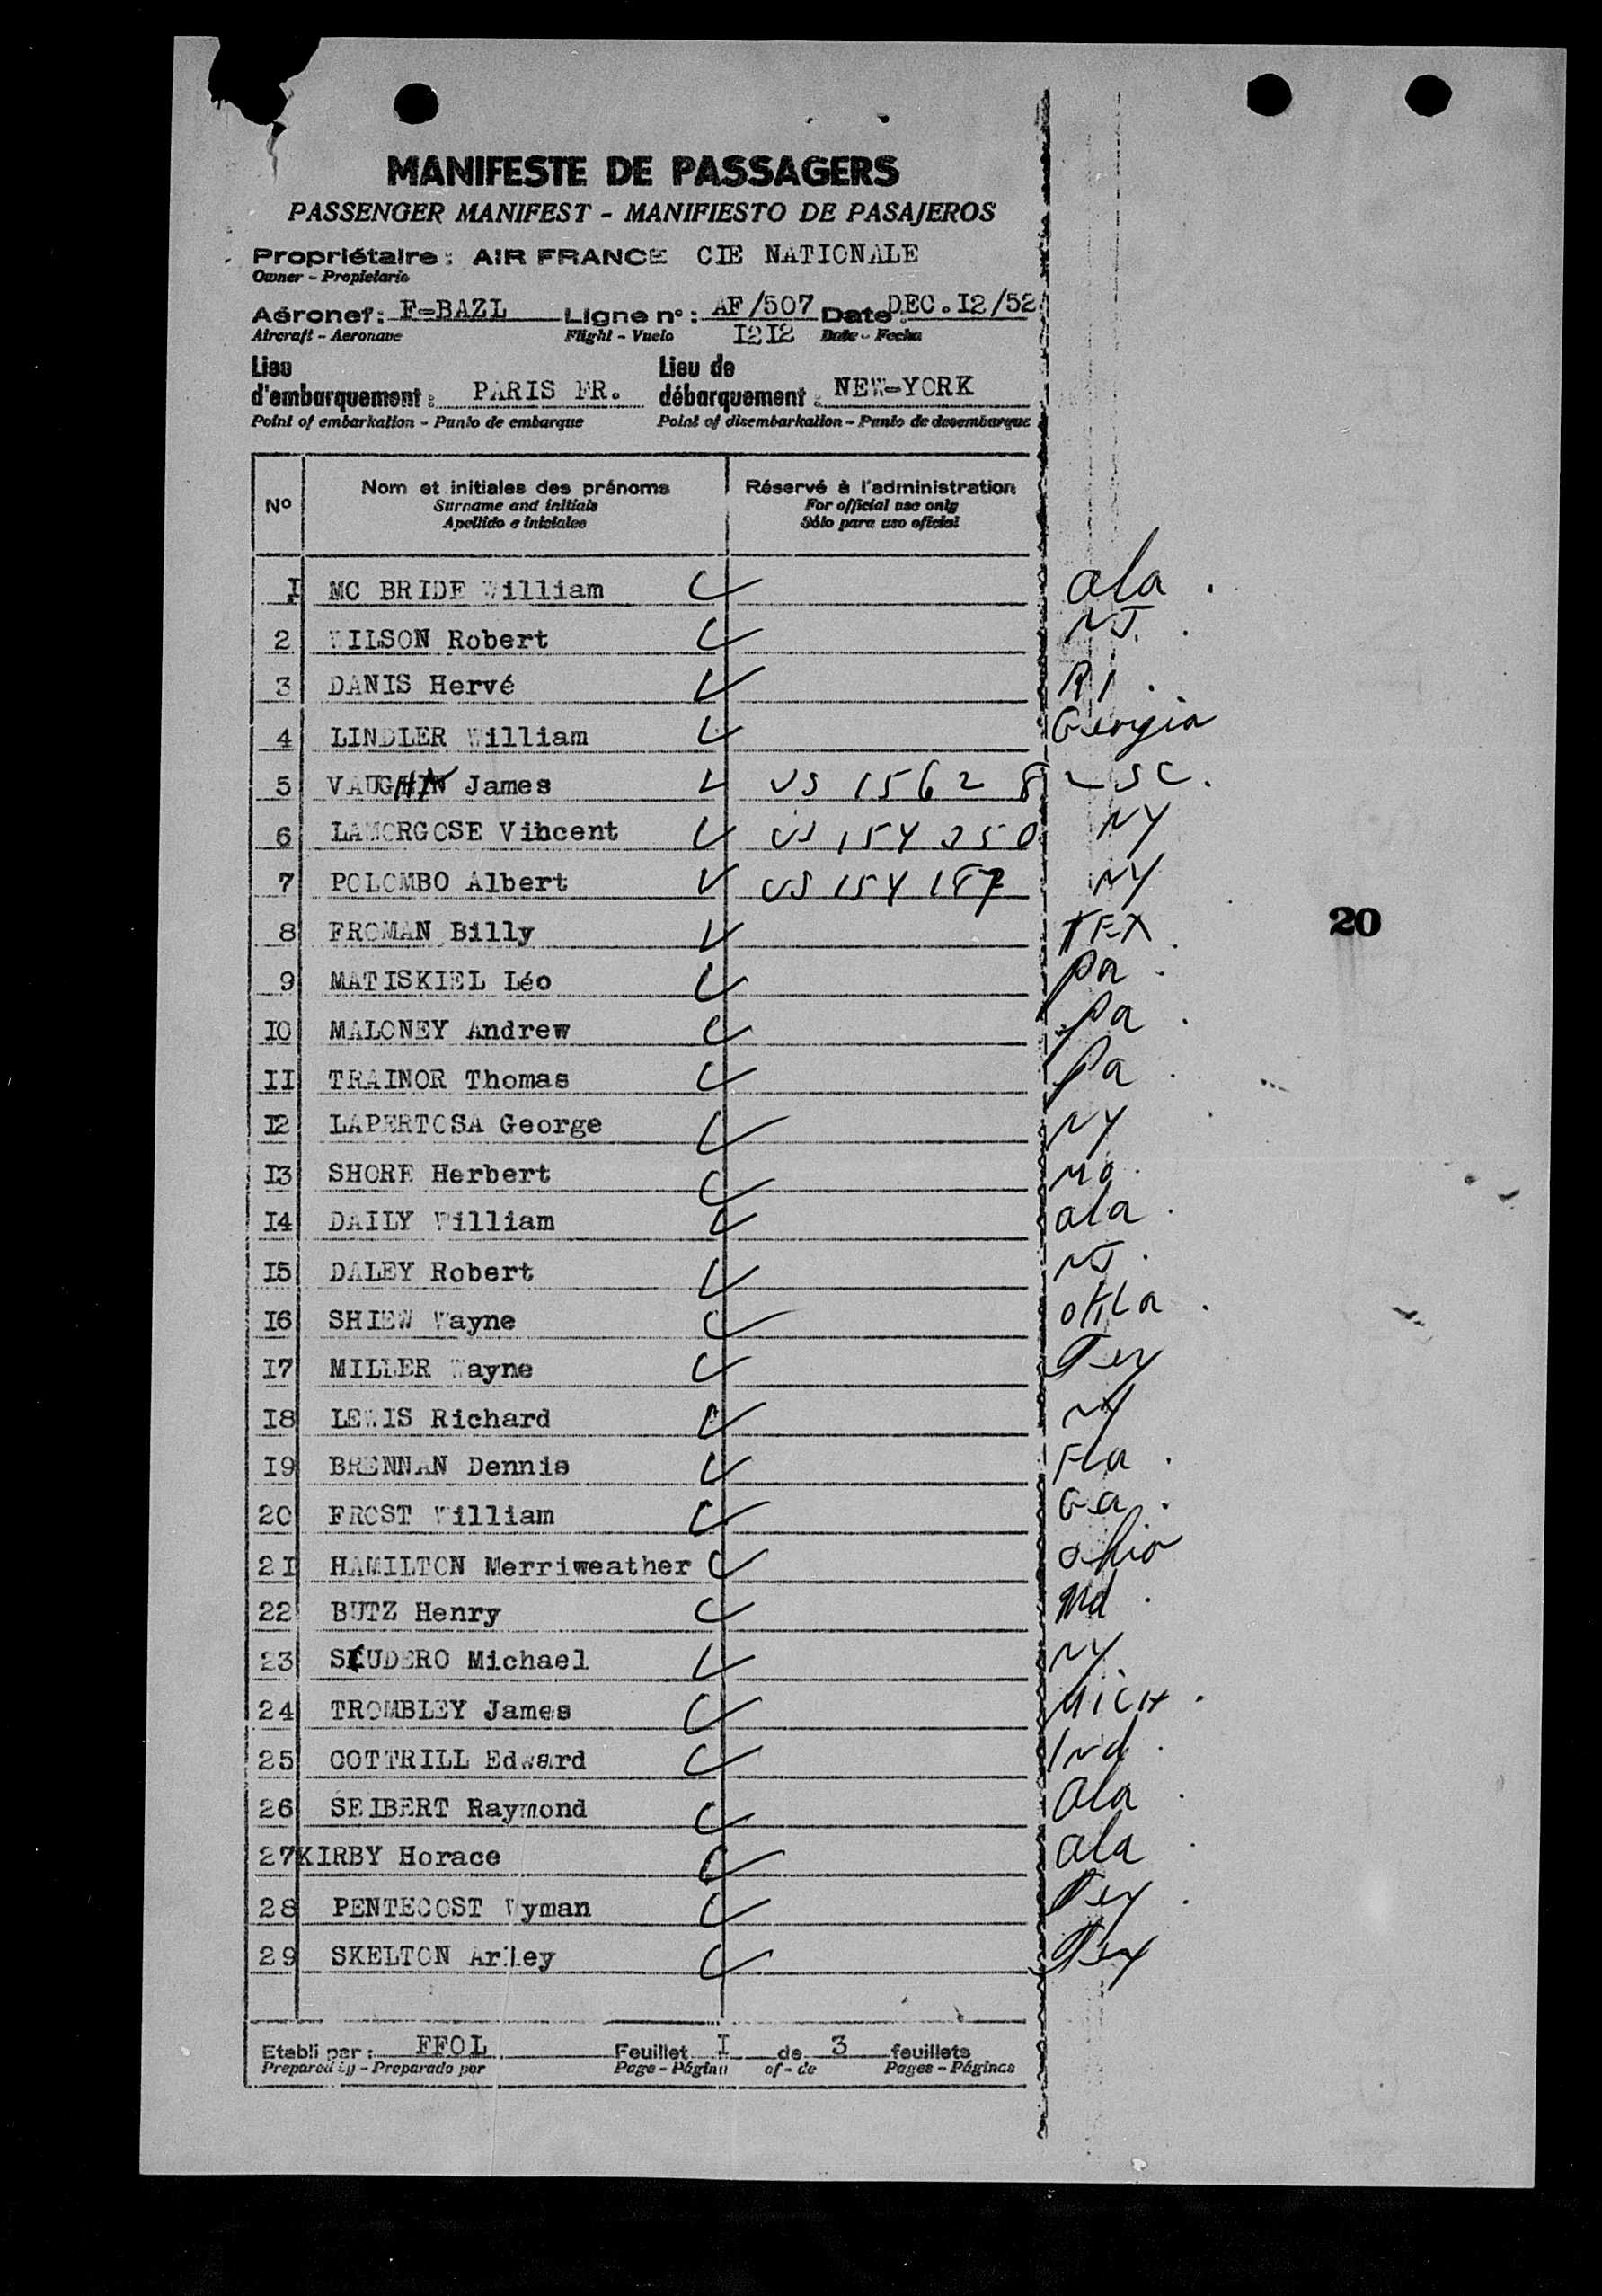 MANIFESTE DE PASSAGERS
PASSENGER MANIFEST - MANIFIESTO DE PASAJEROS
Propriétaire: AIR FRANCE CIE NATIONALE
Owner - Propietario
Aéronef: F-BAZL Ligne n°: AF/507 Date: DEC.I2/52
Aircraft - Aeronave Flight - Vuelo I2I2 Date - Fecha
Lieu Lieu de
d'embarquement: PARIS FR. débarquement: NEW-YORK
Point of embarkation - Punto de embarque Point of disembarkation - Punto de desembarque
N° Nom et initiales des prénoms Réservé à l'administration
Surname and initials For official use only
Apellido e iniciales Sólo para uso oficial
I MC BRIDE William ala.
2 WILSON Robert NJ.
3 DANIS Hervé RI.
4 LINDLER William Georgia
5 VAUGHN James US 15628 SC.
6 LAMORGOSE Vibcent US 154 350 NY
7 POLOMBO Albert US 154 187 NY
8 FROMAN Billy TEX.
20
9 MATISKIEL Léo Pa.
IO MALONEY Andrew Pa.
II TRAINOR Thomas Pa.
I2 LAPERTOSA George NY
I3 SHORE Herbert MO.
I4 DAILY William ala.
I5 DALEY Robert NJ.
I6 SHIEW Wayne OKLa.
I7 MILLER Wayne Tex
I8 LEWIS Richard NY
I9 BRENNAN Dennis Fla.
20 FROST William Ga.
2I HAMILTON Merriweather Ohio
22 BUTZ Henry Md.
23 SCUDERO Michael NY
24 TROMBLEY James MICH.
25 COTTRILL Edward Ind.
26 SEIBERT Raymond ala.
27 KIRBY Horace ala.
28 PENTECOST Wyman Tex.
29 SKELTON Arley Tex
Etabli par: FFOL Feuillet I de 3 feuillets
Prepared by - Preparado por Page - Página of - de Pages - Páginas